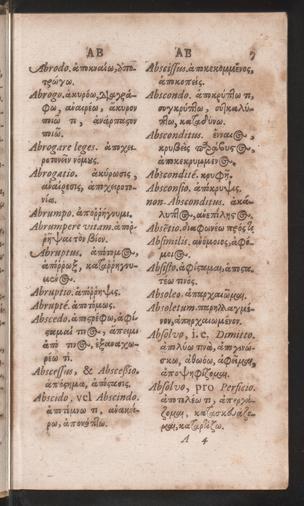 AB
Abrodo. ἀποκναίω, ὑπο-
τρώγω.
Abrogo. ἀκυρόω, διαγρά-
φω, ἀναιρέω, ἄκυρον
ποιῶ τι, ἀνάρπαστον
ποιῶ.
Abrogare leges. ἀποχει-
ροτονεῖν νόμους.
Abrogatio. ἀκύρωσις,
ἀναίρεσις, ἀποχειροτο-
νία.
Abrumpo. ἀποῤῥήγνυμι.
Abrumpere vitam. ἀποῤ-
ῥῆψαι τὸν βίον.
Abruptus. ἀπότομος,
ἀπόῤῥωξ,
Abruptio. ἀπόῤῥηξις.
Abrupté. ἀποτόμως.
Abscedo. ἀποτρέφω, ἀφί-
σταμαί τινος, ἄπειμι
ἀπό τινος, ἐξαναχω-
ρέω τι.
Abscessus, & Abscessio.
ἀπόστημα, ἀπόστασις.
Abscido, vel Abscindo.
ἀποτέμνω τι,
ἀποκόπτω.
AB
9
Abscissus. ἀποκεκομμένος,
ἀποκοπείς.
Abscondo. ἀποκρύπτω τι,
συγκρύπτω, συγκαλύ-
πτω, καταδύνω.
Absconditus.
κρυβεὶς
ἀποκεκρυμμένος.
Abscondité. κρυφῇ.
Absconsio. ἀπόκρυψις.
non Absconditus. ἀκά-
λυπτος,
διαφωνέω πρός τι
Absimilis. ἀνόμοιος, ἀφό-
μοιος.
Absisto. ἀφίσταμαι, ἀποστα-
τέω τινός.
Absoleo. ἀπαρχαιῶμαι.
Absoletum. παρηλλαγμέ-
νον, ἀπηρχαιωμένον.
Absolvo, i. e. Dimitto.
ἀπολύω τινὰ, ἀπογινώ-
σκω, ἀθωόω, ἀφίημι,
ἀποψηφίζομαι.
Absolvo, pro Perficio.
ἀποτελέω τι, ἀπεργά-
ζομαι, κατασκευάζο-
μαι, καταρτίζω.
A 4